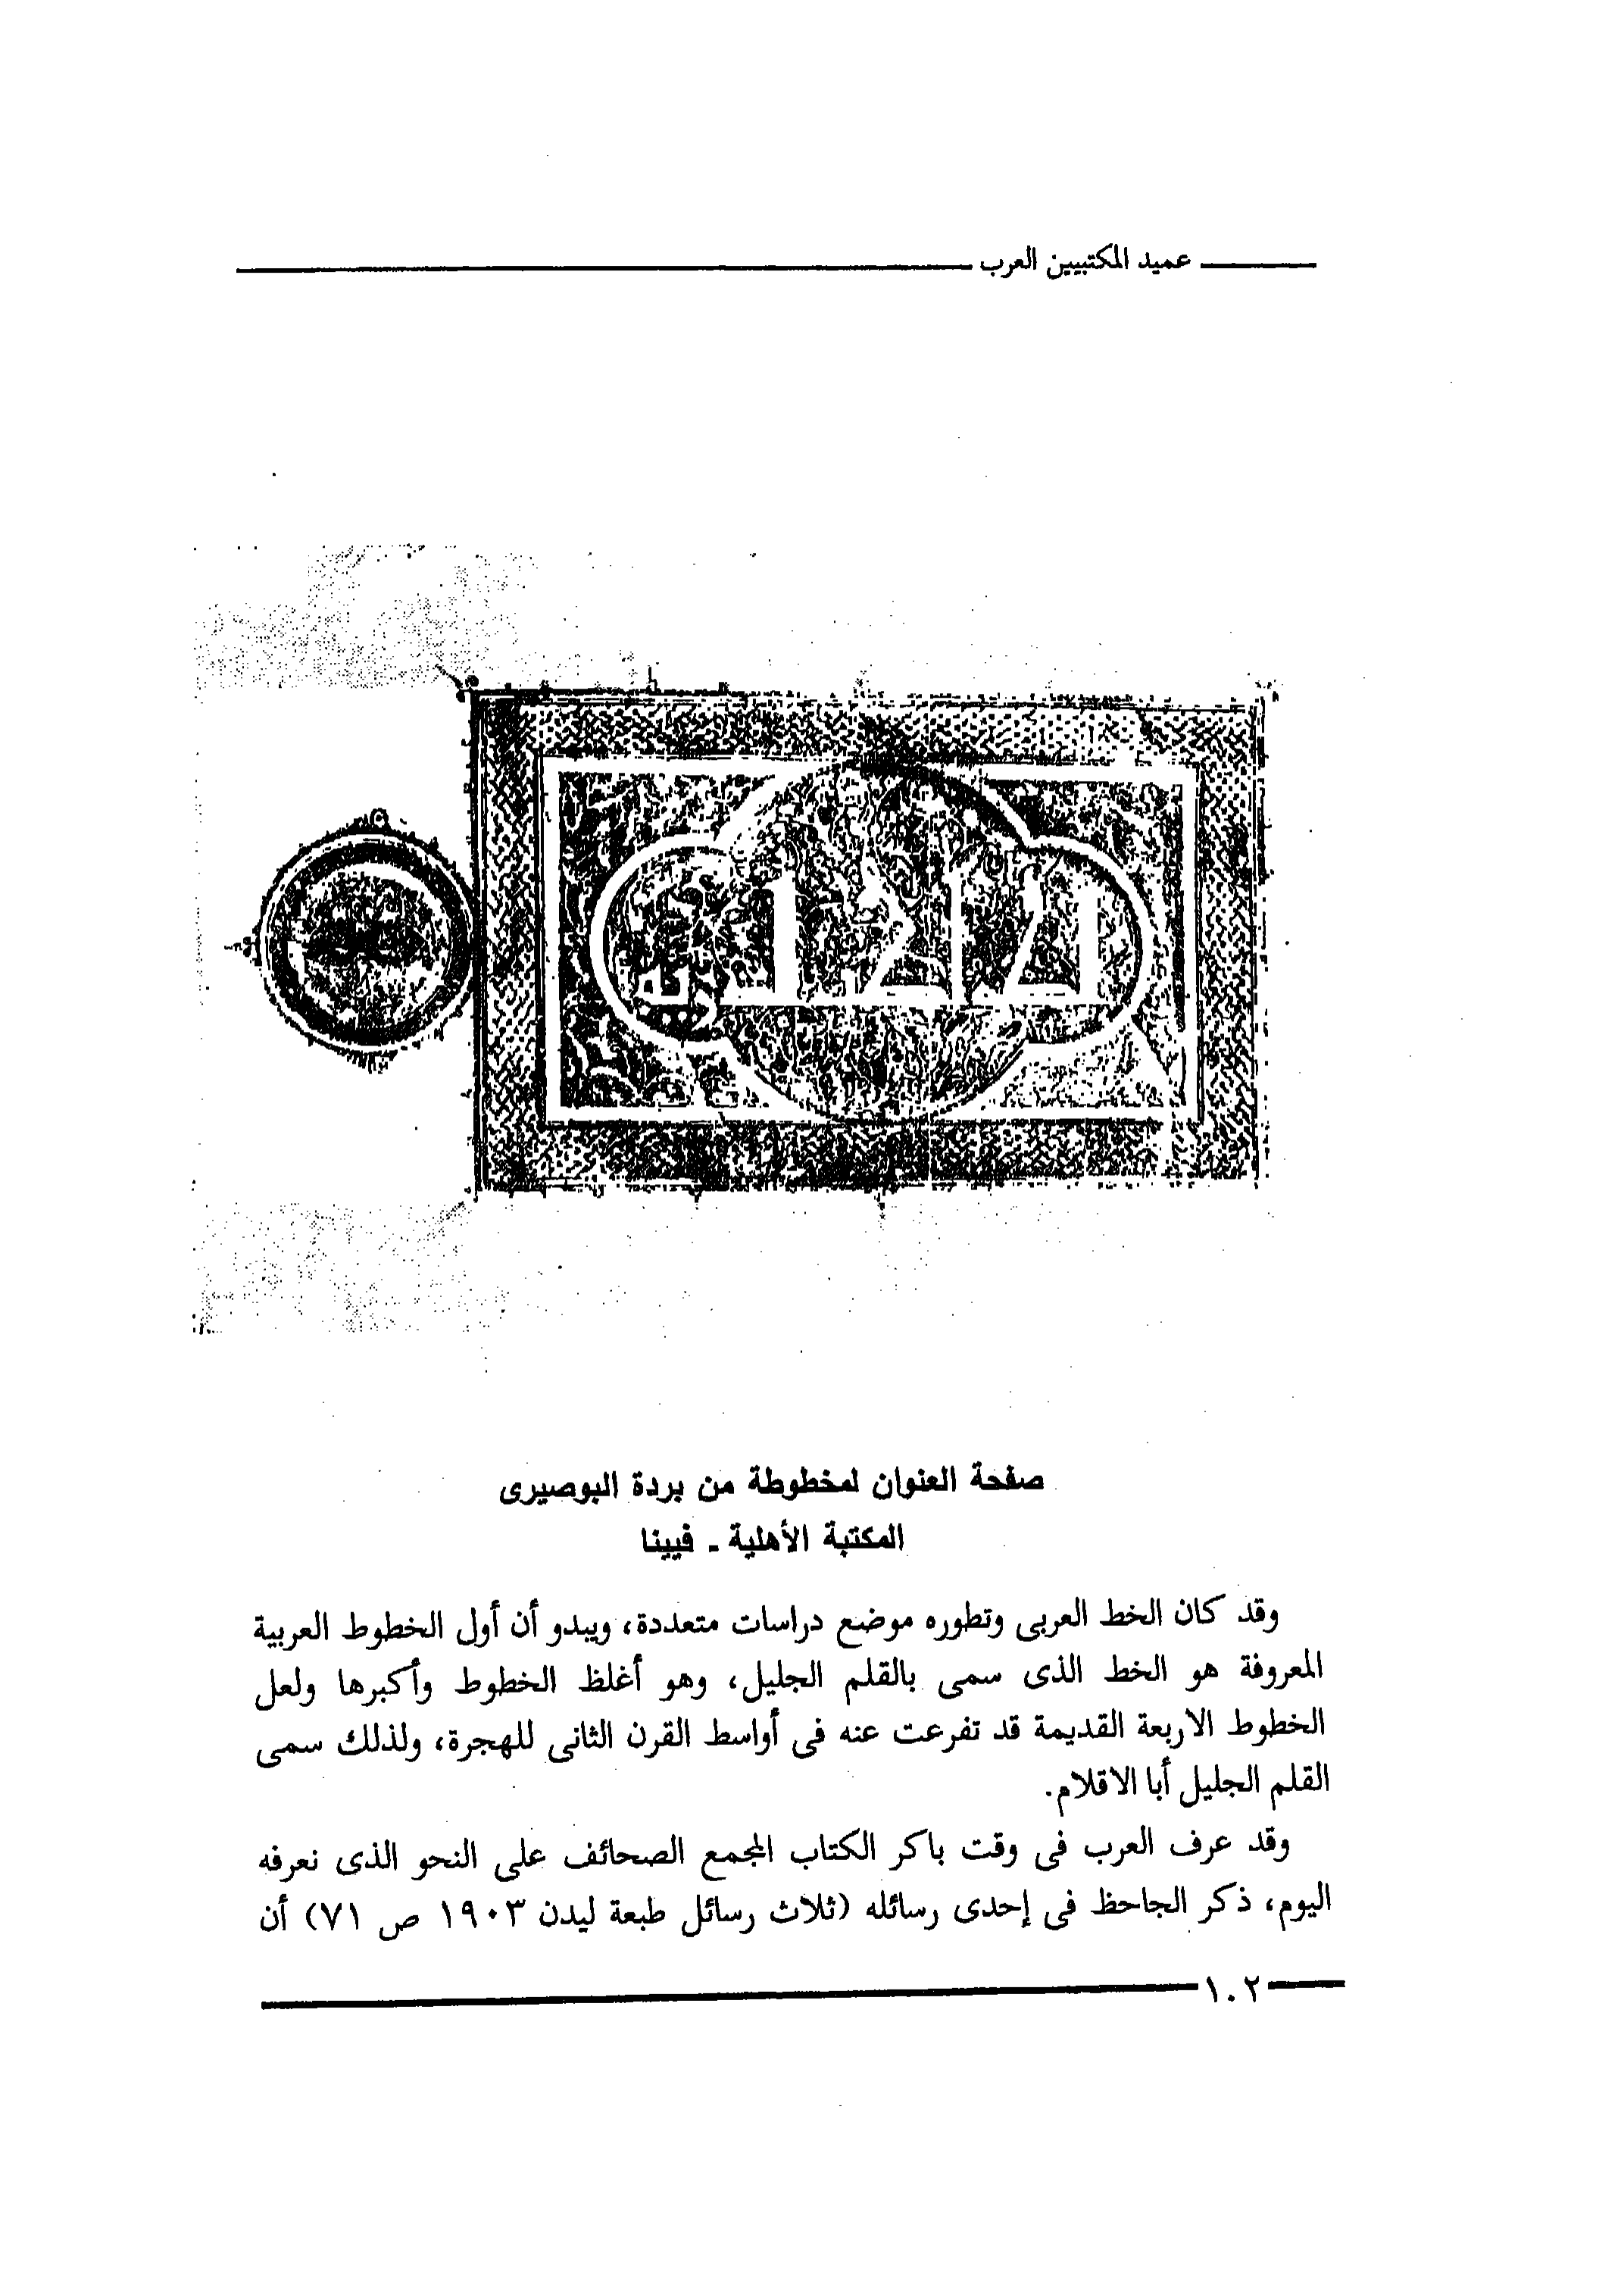 عميد المكتبيين العرب
صفحة العنوان لمخطوطة من بردة البوصيرى
المكتبة الأهلية - فيينا
وقد كان الخط العربى وتطوره موضع دراسات متعددة، ويبدو أن أول الخطوط العربية
المعروفة هو الخط الذى سمى بالقلم الجليل، وهو أغلظ الخطوط وأكبرها ولعل
الخطوط الاربعة القديمة قد تفرعت عنه فى أواسط القرن الثانى للهجرة، ولذلك سمى
القلم الجليل أبا الاقلام.
وقد عرف العرب فى وقت باكر الكتاب المجمع الصحائف على النحو الذى نعرفه
اليوم، ذكر الجاحظ فى إحدى رسائله (ثلاث رسائل طبعة ليدن ١٩٠٣ ص ٧١) أن
١٠٢